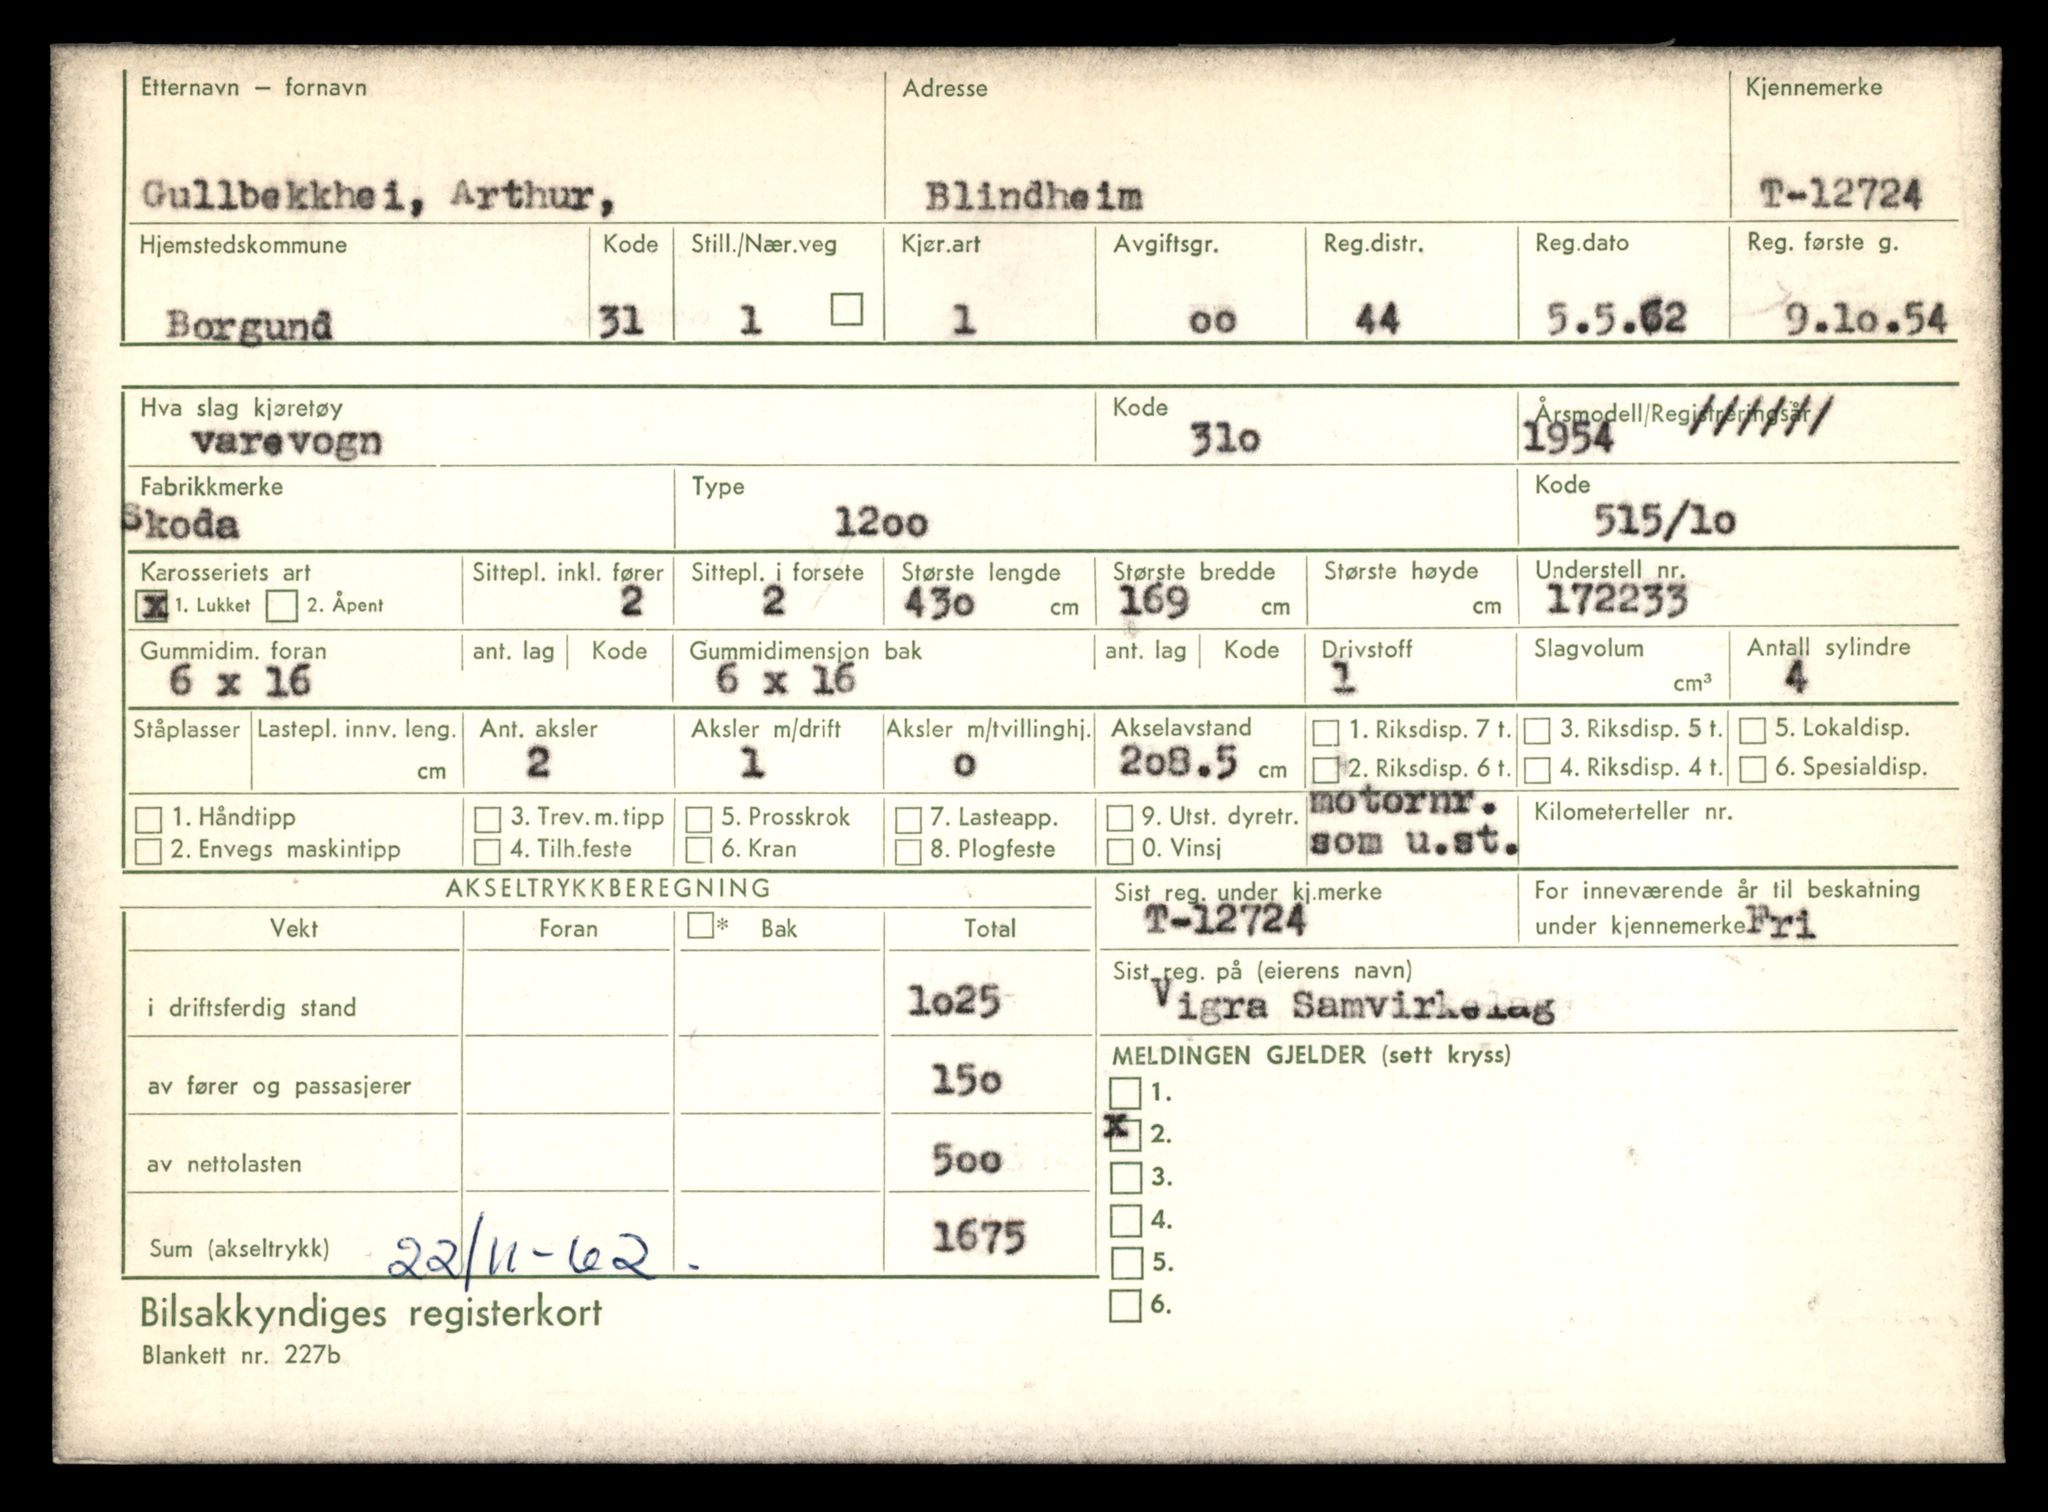 Etternavn – fornavn Adresse Kjennemerke
Gullbekkhei, Arthur, Blindheim T-12724
Hjemstedskommune Kode Still./Nær.veg Kjør.art Avgiftsgr. Reg.distr. Reg.dato Reg. første g.
Borgund 31 1 1 oo 44 5.5.62 9.1o.54
Hva slag kjøretøy Kode Årsmodell/Registreringsår
varevogn 31o 1954 //////
Fabrikkmerke Type Kode
Skoda 12oo 515/1o
Karosseriets art Sittepl. inkl. fører Sittepl. i forsete Største lengde Største bredde Største høyde Understell nr.
x 1. Lukket 2. Åpent 2 2 43o cm 169 cm cm 172233
Gummidim. foran ant. lag Kode Gummidimensjon bak ant. lag Kode Drivstoff Slagvolum Antall sylindre
6 x 16 6 x 16 1 cm³ 4
Ståplasser Lastepl. innv. leng. Ant. aksler Aksler m/drift Aksler m/tvillinghj. Akselavstand 1. Riksdisp. 7 t. 3. Riksdisp. 5 t. 5. Lokaldisp.
cm 2 1 o 2o8.5 cm 2. Riksdisp. 6 t. 4. Riksdisp. 4 t. 6. Spesialdisp.
1. Håndtipp 3. Trev. m. tipp 5. Prosskrok 7. Lasteapp. 9. Utst. dyretr. motornr. Kilometerteller nr.
2. Envegs maskintipp 4. Tilh.feste 6. Kran 8. Plogfeste 0. Vinsj som u.st.
AKSELTRYKKBEREGNING Sist reg. under kj.merke For inneværende år til beskatning
Vekt Foran * Bak Total T-12724 under kjennemerke Fri
Sist reg. på (eierens navn)
i driftsferdig stand 1o25 Vigra Samvirkelag
MELDINGEN GJELDER (sett kryss)
av fører og passasjerer 15o 1.
x 2.
av nettolasten 5oo 3.
4.
Sum (akseltrykk) 22/11-62. 1675 5.
Bilsakkyndiges registerkort 6.
Blankett nr. 227b